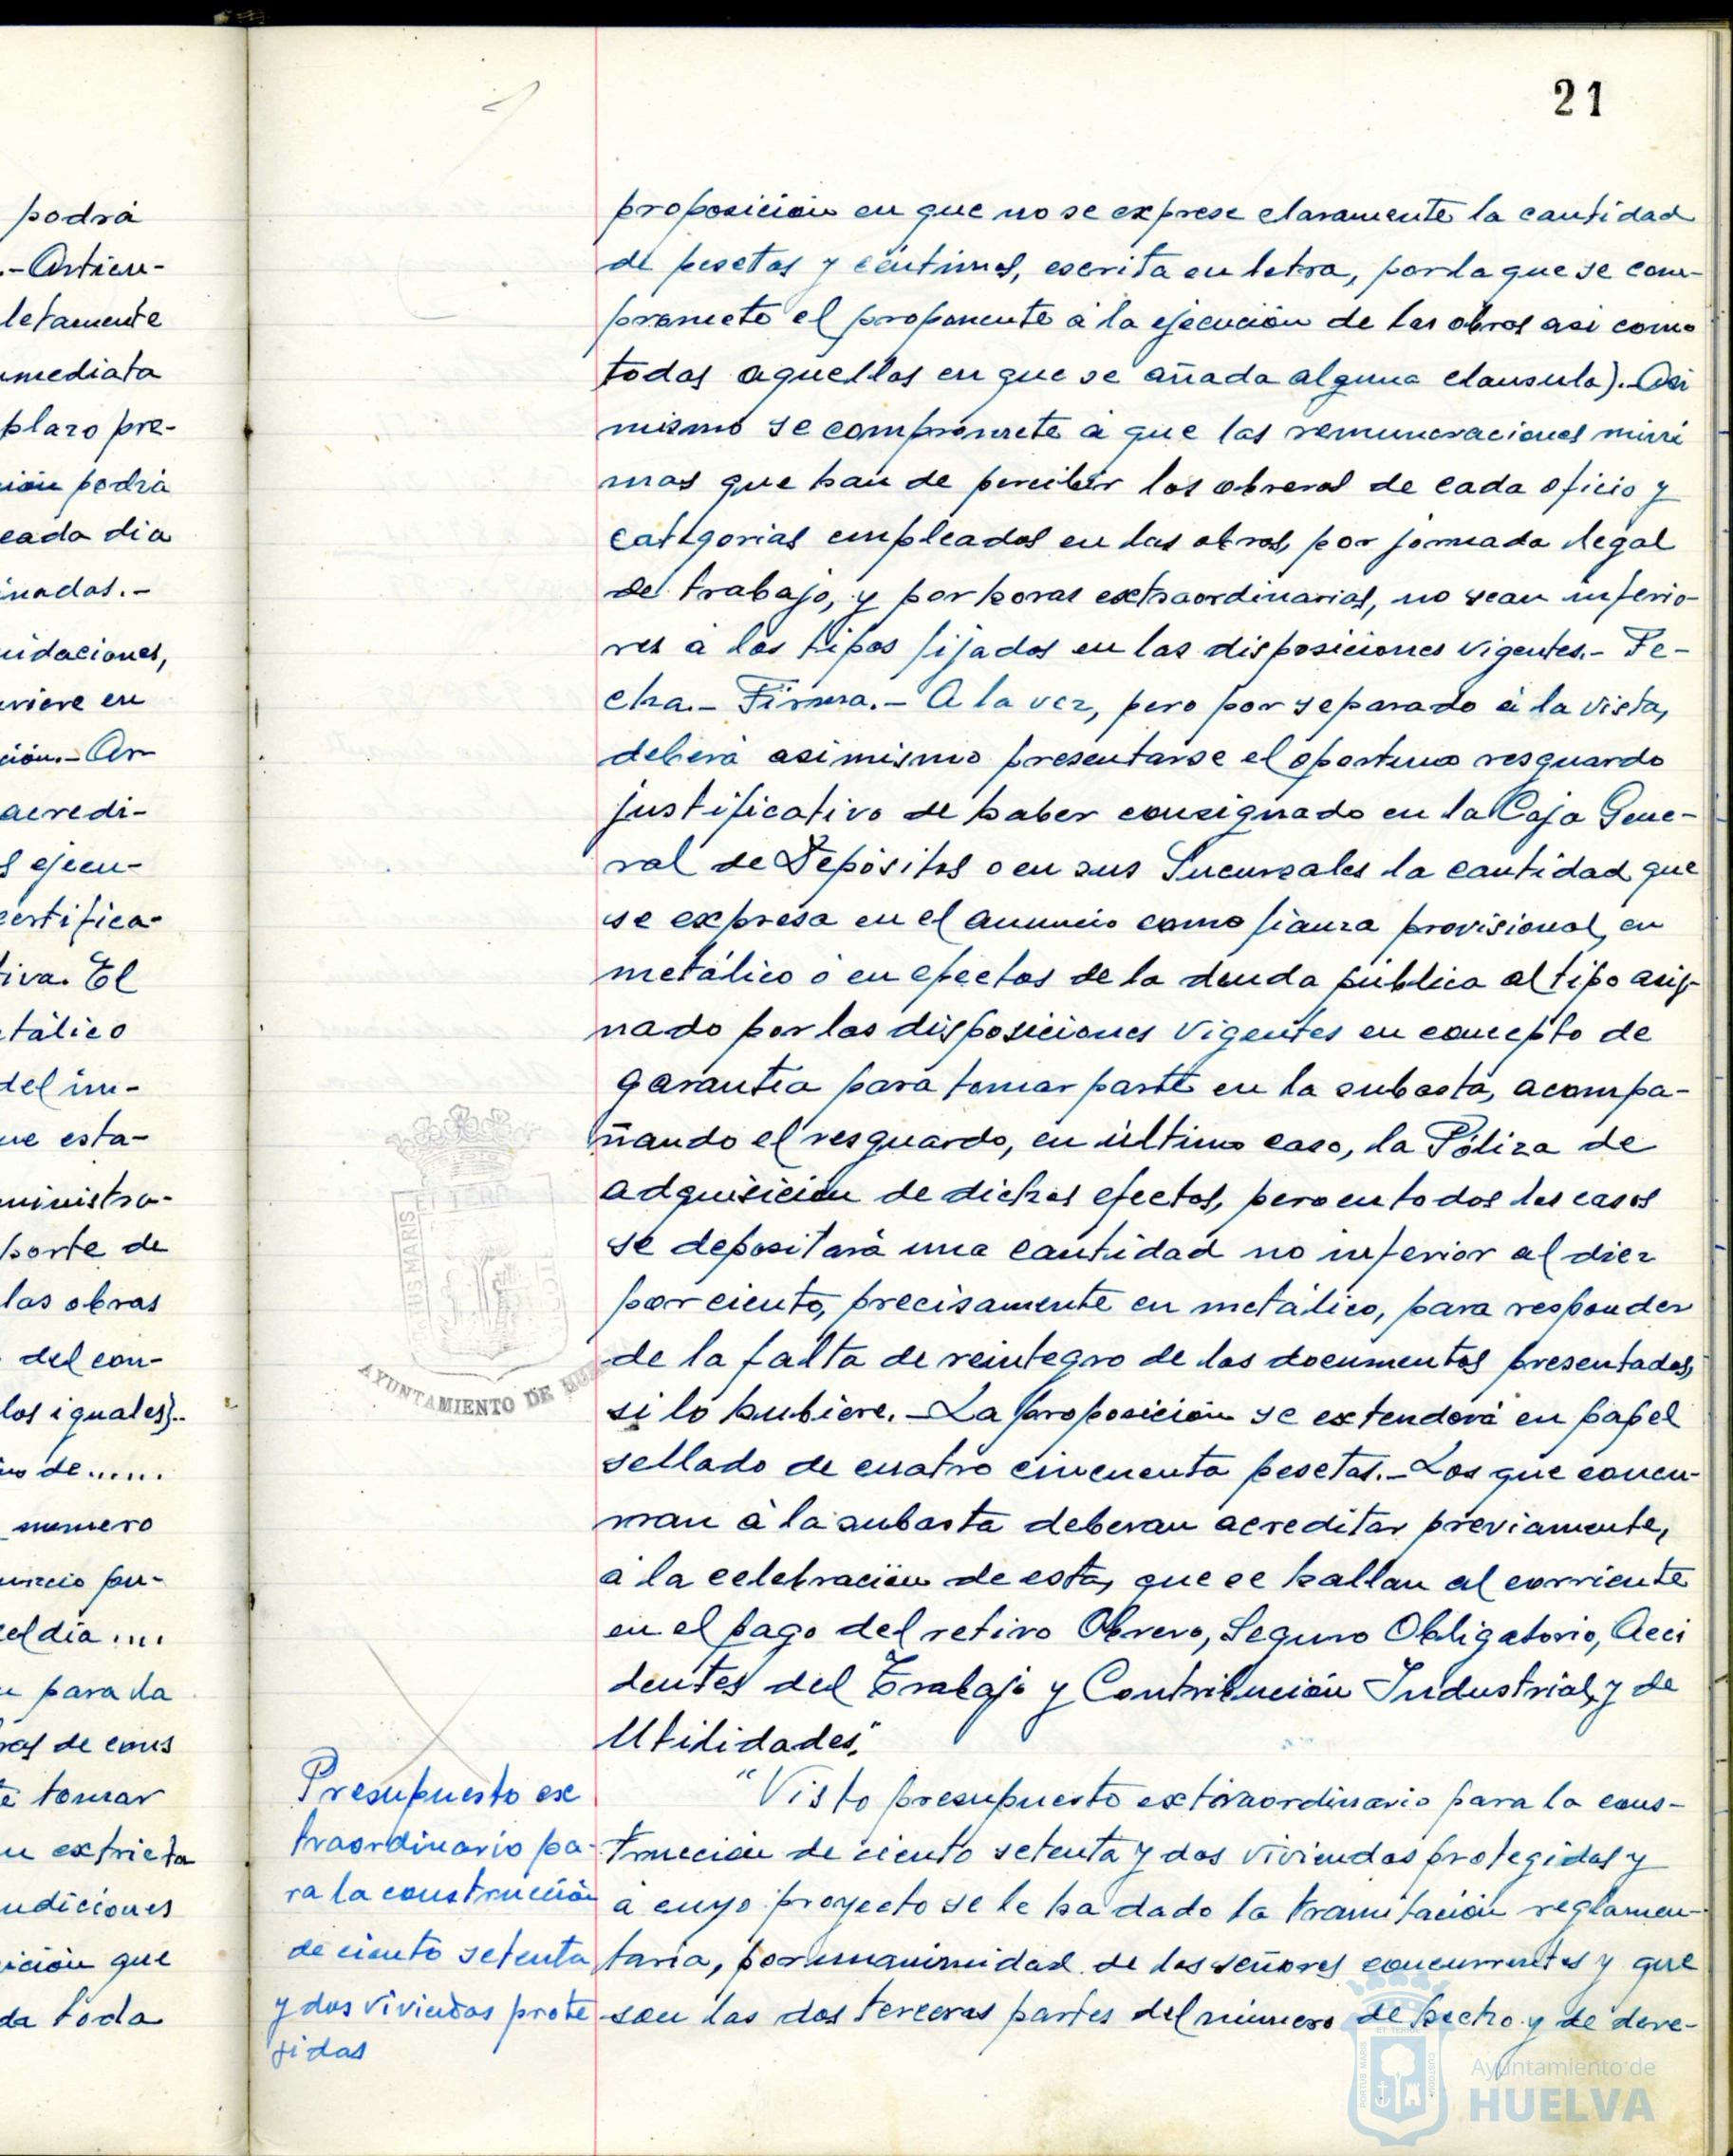 podrá
.-Articu-
letamente
mediata
plazo pre-
ión podrá
cada dia
inadas.-
uidaciones,
uviere en
ción.-Ar
acredi-
s ejecu-
certifica-
tiva. El
tálico
del im-
ue esta-
ministra-
porte de
las obras
del con-
los iguales)..
de......
numero
uncio pu-
el dia....
para la
ras de cons
tomar
extricta
ndiciones
ición que
da toda
21
proposición en que no se exprese claramente la cantidad
de pesetas y céntimos, escrita en letra, por la que se com-
promete el proponente á la ejecución de las obras asi como
todas aquellas en que se añada alguna clausula).-Asi
mismo se compromete á que las remuneraciones míni
mas que han de percibir los obreros de cada oficio y
categorias empleados en las obras, por jornada legal
de trabajo, y por horas extraordinarias, no sean inferio-
res á los tipos fijados en las disposiciones vigentes.- Fe-
cha.- Firma.- A la vez, pero por separado á la vista,
deberá asimismo presentarse el oportuno resguardo
justificativo de haber consignado en la Caja Gene-
ral de Depósitos o en sus Sucursales la cantidad que
se expresa en el anuncio como fianza provisional, en
metálico ó en efectos de la deuda pública al tipo asig-
nado por las disposiciones vigentes en concepto de
garantía para tomar parte en la subasta, acompa-
ñando el resguardo, en último caso, la Póliza de
adquisición de dichos efectos, pero en todos los casos
se depositará una cantidad no inferior al diez
por ciento, precisamente en metálico, para responder
de la falta de reintegro de los documentos presentados,
si lo hubiere.-La proposición se extenderá en papel
sellado de cuatro cincuenta pesetas.-Los que concu-
rran á la subasta deberan acreditar previamente,
á la celebración de esta, que se hallan al corriente
en el pago del retiro Obrero, Seguro Obligatorio, Acci
dentes del Trabajo y Contribución Industrial, y de
Utilidades."
"Visto presupuesto extraordinario para la cons-
trucción de ciento setenta y dos viviendas protegidas y
á cuyo proyecto se le ha dado la tramitación reglamen-
taria, por unanimidad de los señores concurrentes y que
son las dos terceras partes del número de hecho y de dere-
Presupuesto ex
traordinario pa-
ra la construcción
de ciento setenta
y dos viviendas prote
gidas
PORTUS MARIS ET TERRAE CUSTODIA
AYUNTAMIENTO DE HUELVA
PORTUS MARIS ET TERRAE CUSTODIA
Ayuntamiento de
HUELVA